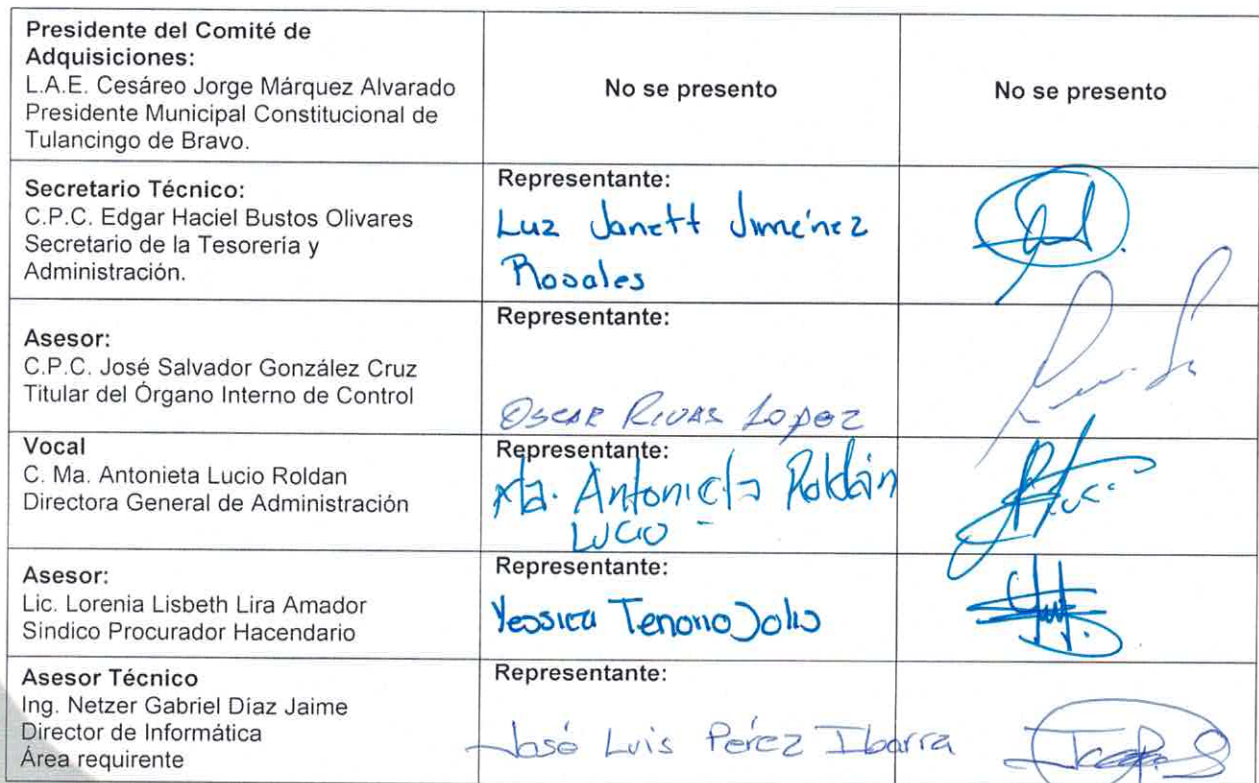 Presidente del Comité de
Adquisiciones:
L.A.E. Cesáreo Jorge Márquez Alvarado
Presidente Municipal Constitucional de
Tulancingo de Bravo.
No se presento
No se presento
Secretario Técnico:
C.P.C. Edgar Haciel Bustos Olivares
Secretario de la Tesorería y
Administración.
Representante:
Luz Janett Jiménez
Rosales
Asesor:
C.P.C. José Salvador González Cruz
Titular del Órgano Interno de Control
Representante:
Oscar Rivas Lopez
Vocal
C. Ma. Antonieta Lucio Roldan
Directora General de Administración
Representante:
Ma. Antonieta Roldán
Lucio
Asesor:
Lic. Lorenia Lisbeth Lira Amador
Sindico Procurador Hacendario
Representante:
Yessica Tenorio
Asesor Técnico
Ing. Netzer Gabriel Díaz Jaime
Director de Informática
Área requirente
Representante:
José Luis Pérez Ibarra